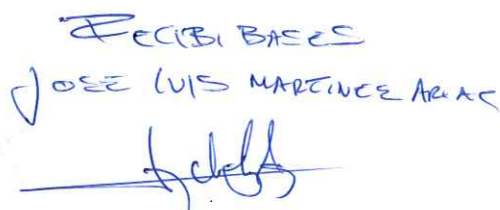 RECIBI BASES
JOSE LUIS MARTINEZ ARIAS